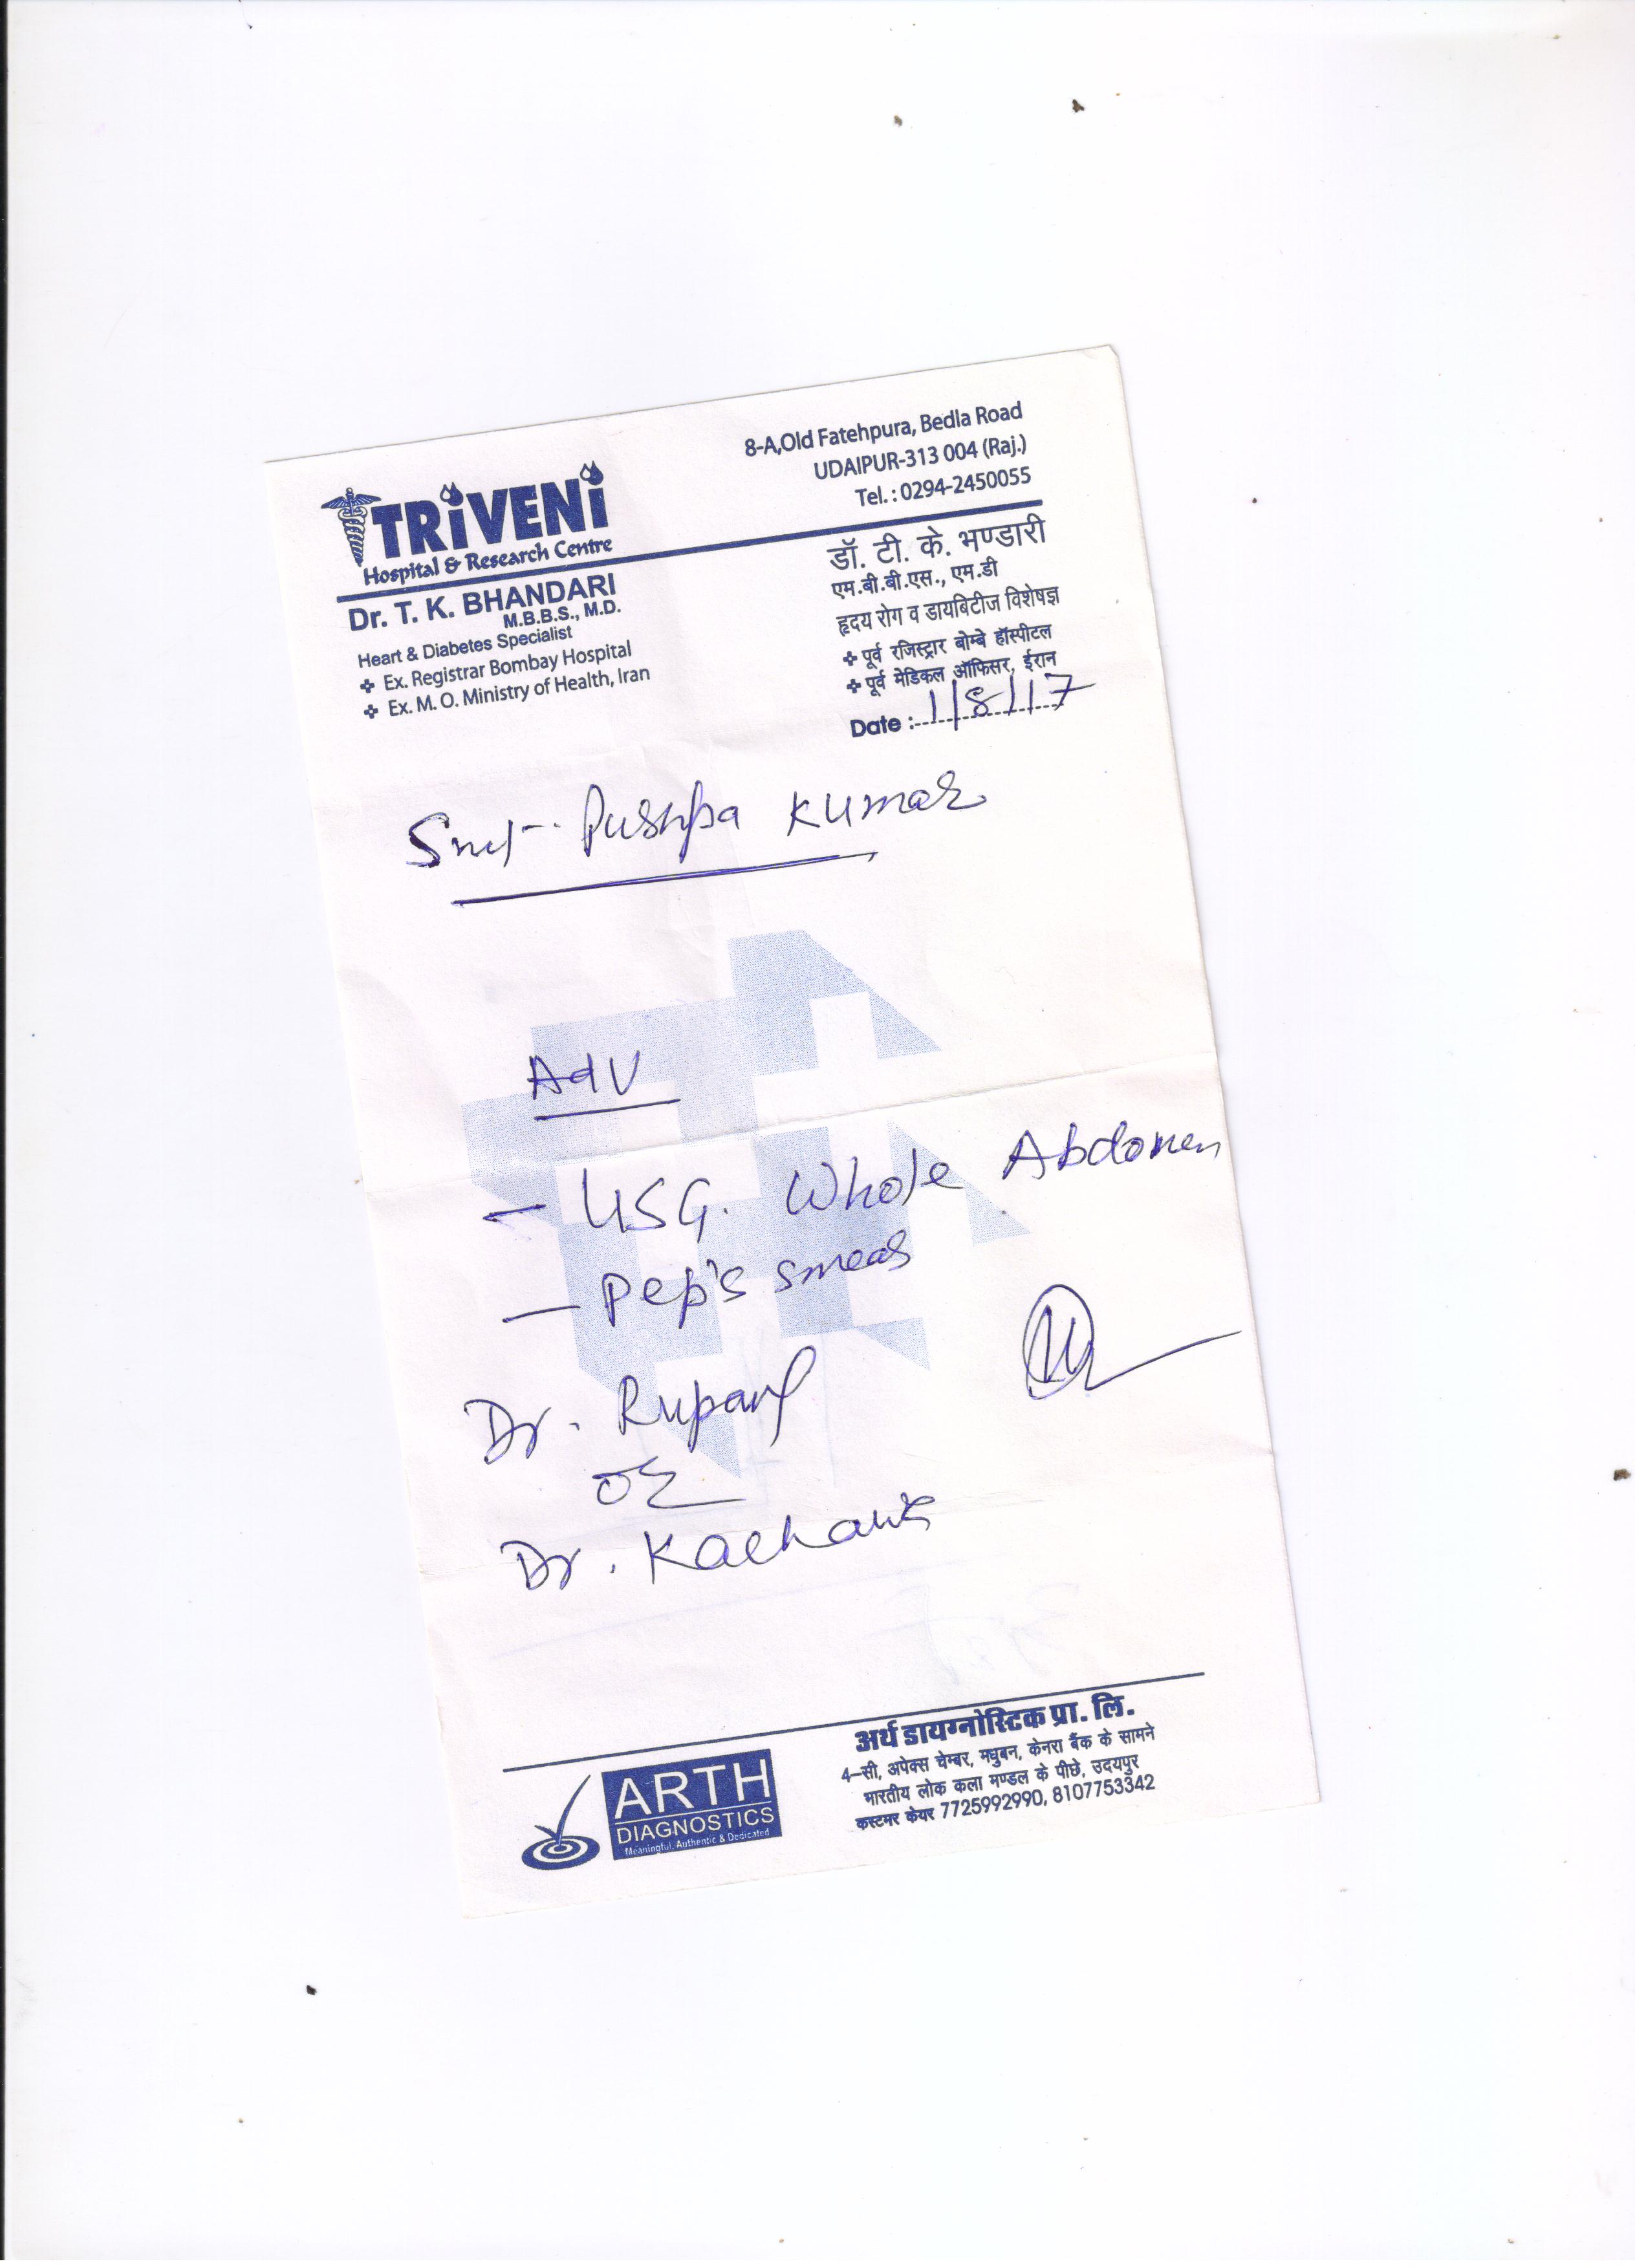 TRiVENi
Hospital & Research Centre
8-A,Old Fatehpura, Bedla Road
UDAIPUR-313 004 (Raj.)
Tel. : 0294-2450055
Dr. T. K. BHANDARI
M.B.B.S., M.D.
Heart & Diabetes Specialist
❖ Ex. Registrar Bombay Hospital
❖ Ex. M. O. Ministry of Health, Iran
डॉ. टी. के. भण्डारी
एम.बी.बी.एस., एम.डी
हृदय रोग व डायबिटीज विशेषज्ञ
❖ पूर्व रजिस्ट्रार बोम्बे हॉस्पीटल
❖ पूर्व मेडिकल ऑफिसर, ईरान
Date : 1/8/17
Smt. Pushpa Kumar
Adv
- USG. Whole Abdomen
- Pep's smear
Dr.
or
Dr.
ARTH
DIAGNOSTICS
Meaningful, Authentic & Dedicated
अर्थ डायग्नोस्टिक प्रा. लि.
4-सी, अपेक्स चेम्बर, मधुबन, केनरा बैंक के सामने
भारतीय लोक कला मण्डल के पीछे, उदयपुर
कस्टमर केयर 7725992990, 8107753342